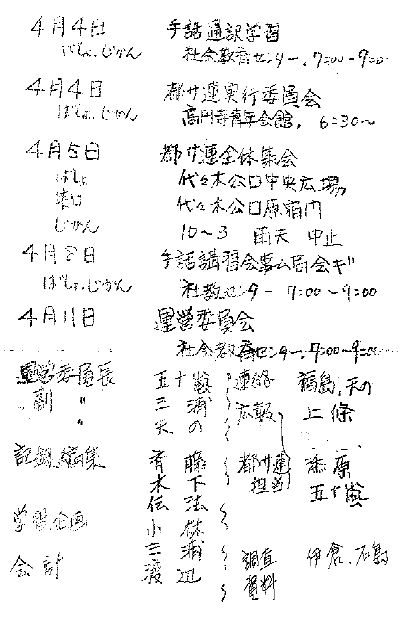 4月4日 手話通訳学習
ばしょ、じかん 社会教育センター、7:00~9:00
4月4日 都サ連実行委員会
ばしょ、じかん 高円寺青年会館、6:30~
4月5日 都サ連全体集会
ばしょ 代々木公口中央広場
代々木公口原宿門
じかん 10~3 雨天 中止
4月8日 手話講習会事ム局会ギ
ばしょ、じかん 社教センター 7:00~9:00
4月11日 運営委員会
社会教育センター、7:00~9:00
運営委員長 五十嵐 連絡 福島、天の
副 〃 三浦 広報 上條
〃 天の
記録、編集 斉藤 都サ連 添原
木下 担当 五十嵐
伝法
学習企画 小林
三浦
会計 渡辺 調査 伊倉、石島
資料